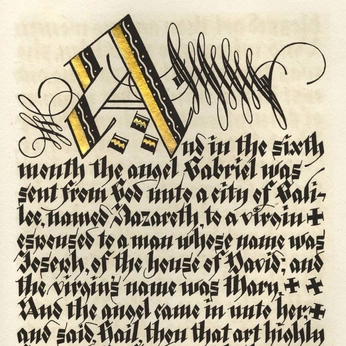 And in the sixth
month the angel Gabriel was
sent from God unto a city of Gali-
lee, named Nazareth, to a virgin ✠
espoused to a man whose name was
Joseph, of the house of David; and
the virgin's name was Mary. ✠ ✠
And the angel came in unto her, ✠
and said, Hail, thou that art highly